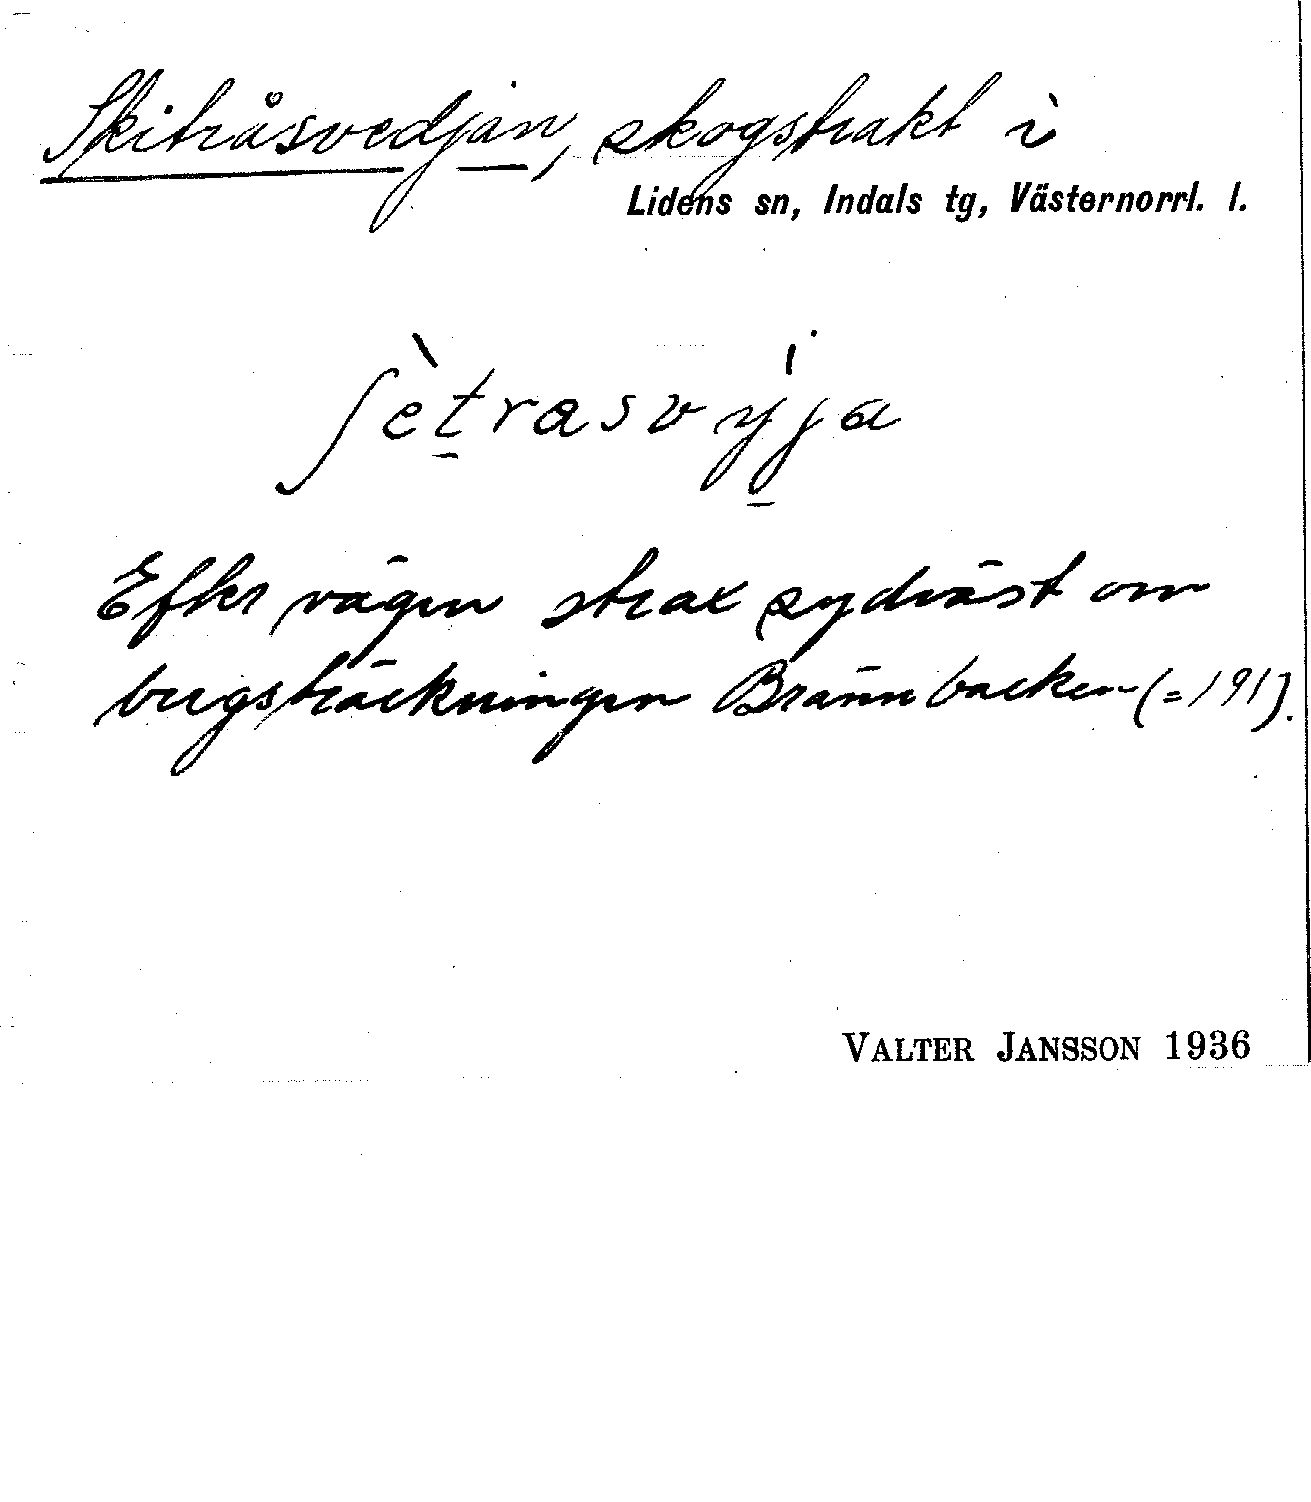 Skitråsvedjan, skogstrakt i
Lidens sn, Indals tg, Västernorrl. l.
ʃètrasvýja
Efter vägen strax sydväst om
bergsträckningen Brännbacken (=191).
VALTER JANSSON 1936